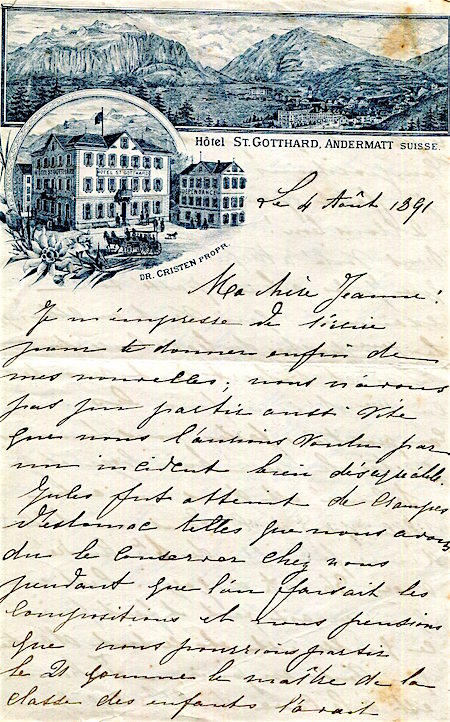 HÔTEL ST. GOTTHARD
HÔTEL ST. GOTTHARD
DEPENDANCE
Hôtel ST. GOTTHARD, ANDERMATT SUISSE.
DR. CRISTEN PROPR.
Le 4 Août 1891
Ma chère Jeanne !
Je m'empresse de t'écrire
pour te donner enfin de
mes nouvelles, nous n'avons
pas pu partir aussi vite
que nous l'aurions voulu par
un incident bien désagréable.
Jules fut atteint de crampes
d'estomac telles que nous avons
du le conserver chez nous
pendant que l'on faisait les
compositions et nous pensions
que nous pourrions partir
le 21 comme le maître de la
classe des enfants l'avait